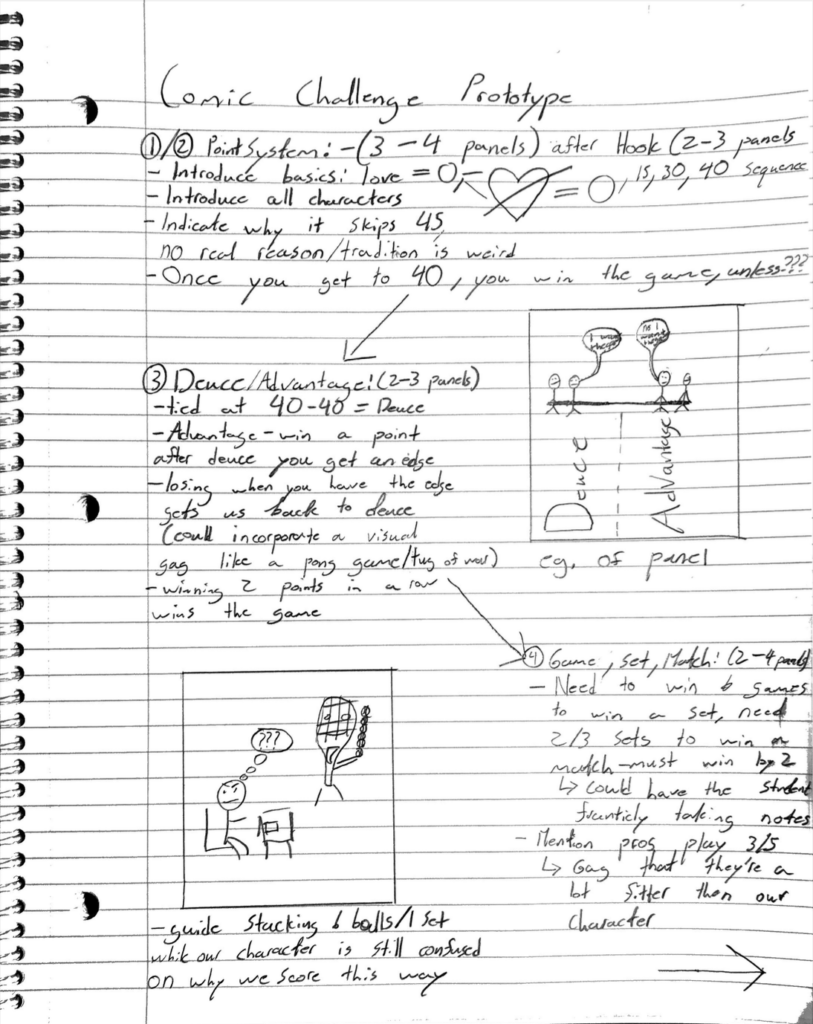 Comic Challenge Prototype
①/② Point System: -(3-4 panels) after Hook (2-3 panels
- Introduce basics: love = 0, = 0, 15, 30, 40 sequence
- Introduce all characters
- Indicate why it skips 45,
no real reason/tradition is weird
- Once you get to 40, you win the game, unless???
③ Deuce/Advantage: (2-3 panels)
- tied at 40-40 = Deuce
- Advantage - win a point
after deuce you get an edge
- losing when you have the edge
gets us back to deuce
(could incorporate a visual
gag like a pong game/tug of war)
- winning 2 points in a row
wins the game
no I want
Deuce
Advantage
eg. of panel
④ Game, Set, Match: (2-4 panels)
- Need to win 6 games
to win a set, need
2/3 sets to win a
match-must win by 2
↳ could have the student
franticly taking notes
- Mention pros play 3/5
↳ Gag that they're a
lot fitter than our
character
???
- guide stacking 6 balls/1 set
while our character is still confused
on why we score this way